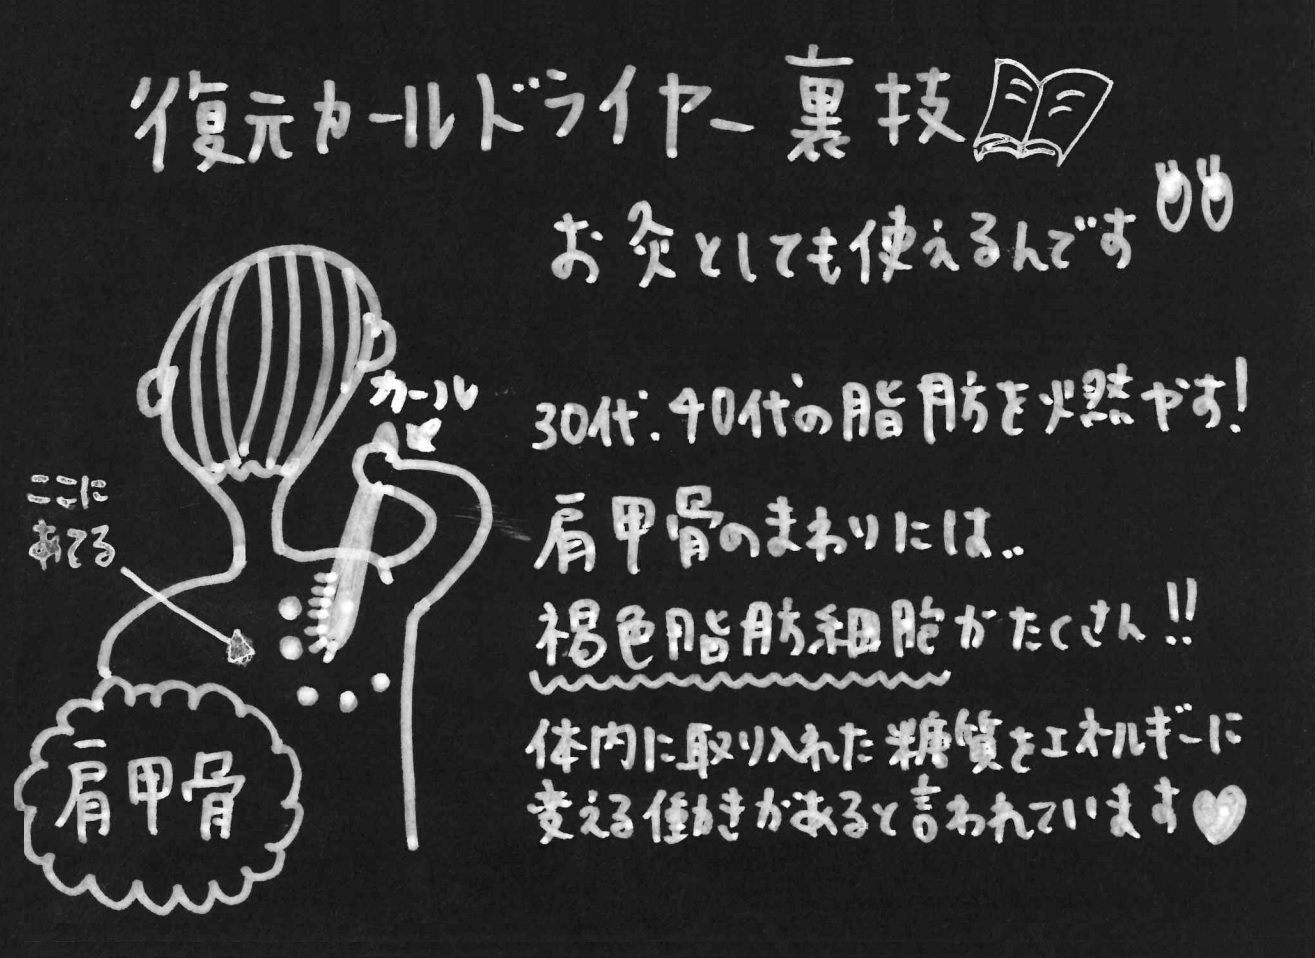 復元カールドライヤー裏技
お灸としても使えるんです
30代.40代の脂肪を燃やす!
肩甲骨のまわりには..
褐色脂肪細胞がたくさん!!
体内に取り入れた糖質をエネルギーに
変える働きがあると言われています♥
カール
ここに
あてる
肩甲骨